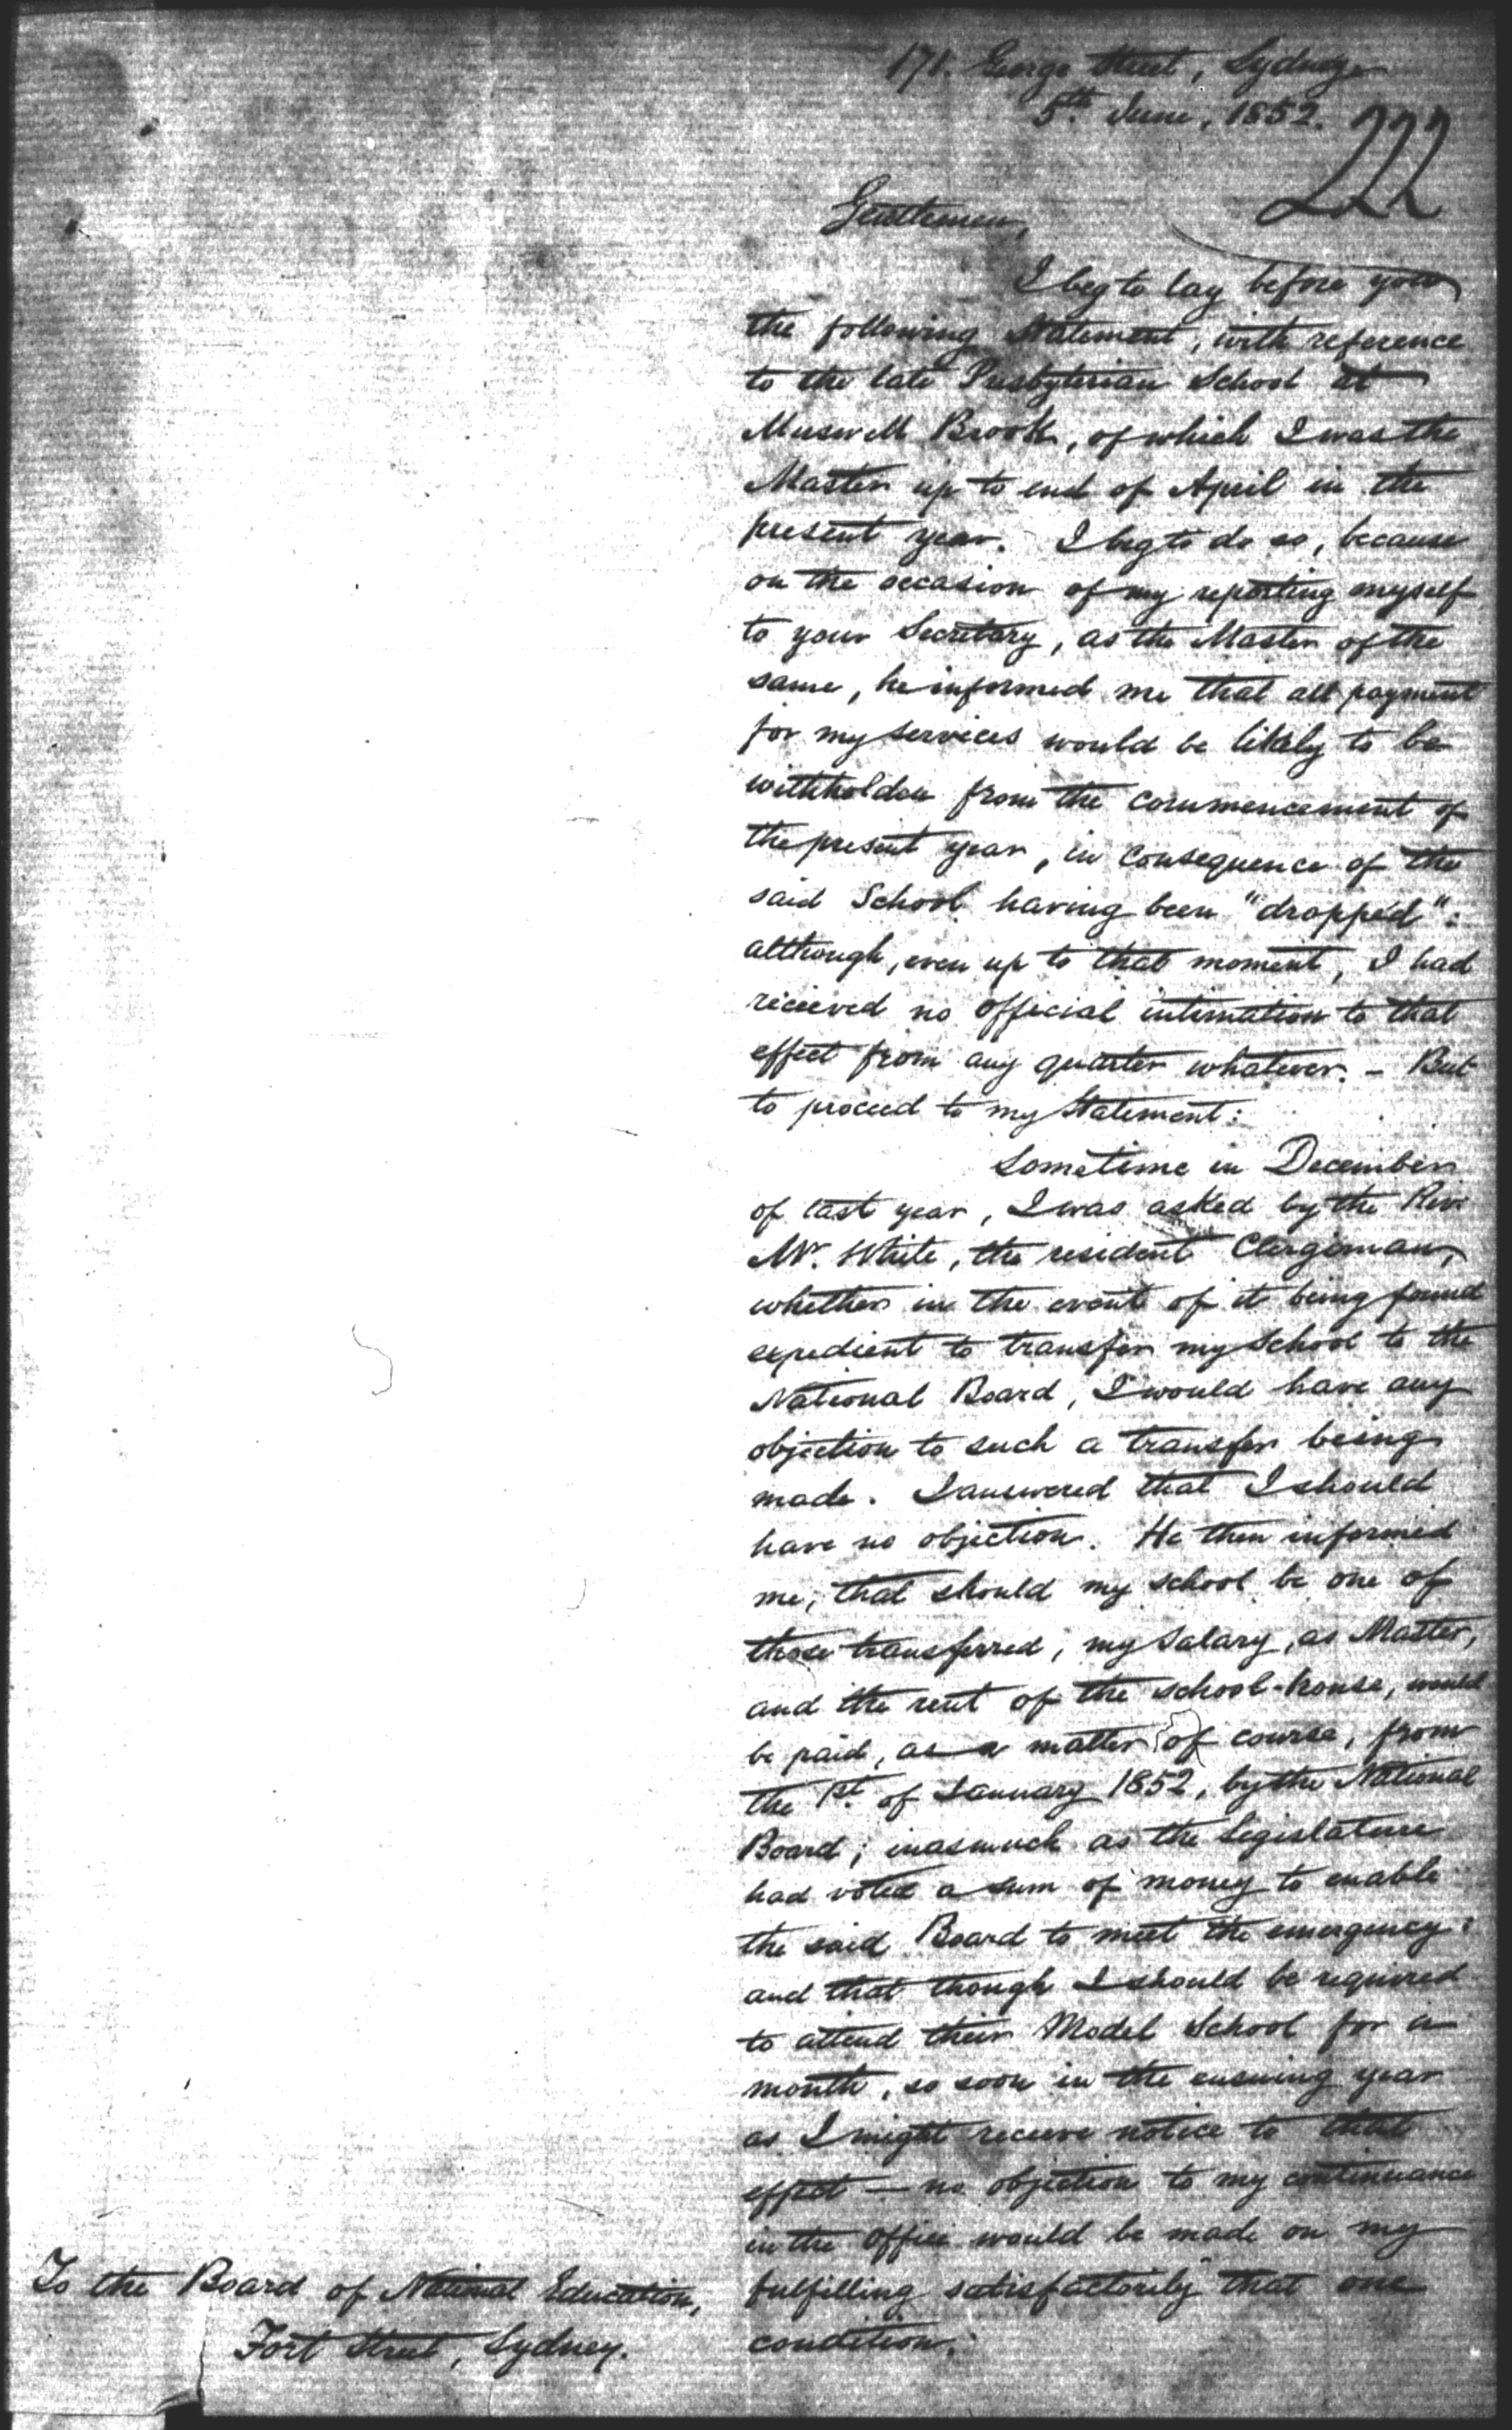 171. George Street, Sydney
5th June, 1852.
222
Gentlemen,
I beg to lay before you
the following Statement, with reference
to the late Presbyterian School at
Muswell Brook, of which I was the
Master up to end of April in the
present year. I beg to do so, because
on the occasion of my reporting myself
to your Secretary, as the Master of the
same, he informed me that all payment
for my services would be likely to be
withholden from the commencement of
the present year, in consequence of the
said School having been "dropped":
although, even up to that moment, I had
recieved no official intimation to that
effect from any quarter whatever. - But
to proceed to my Statement:
Sometime in December
of last year, I was asked by the Rev.
Mr. White, the resident Clergiman,
whether in the event of it being found
expedient to transfer my School to the
National Board, I would have any
objection to such a transfer being
made. I answered that I should
have no objection. He then informed
me, that should my school be one of
those transferred, my Salary, as Master,
and the rent of the school-house, would
be paid, as a matter of course, from
the 1st of January 1852, by the National
Board; inasmuch as the Legislature
had voted a sum of money to enable
the said Board to meet the emergency:
and that though I should be required
to attend their Model School for a
month, so soon in the ensuing year
as I might receive notice to that
effect — no objection to my continuance
in the office would be made on my
fulfilling satisfactorily that one
condition.
To the Board of National Education,
Fort Street, Sydney.